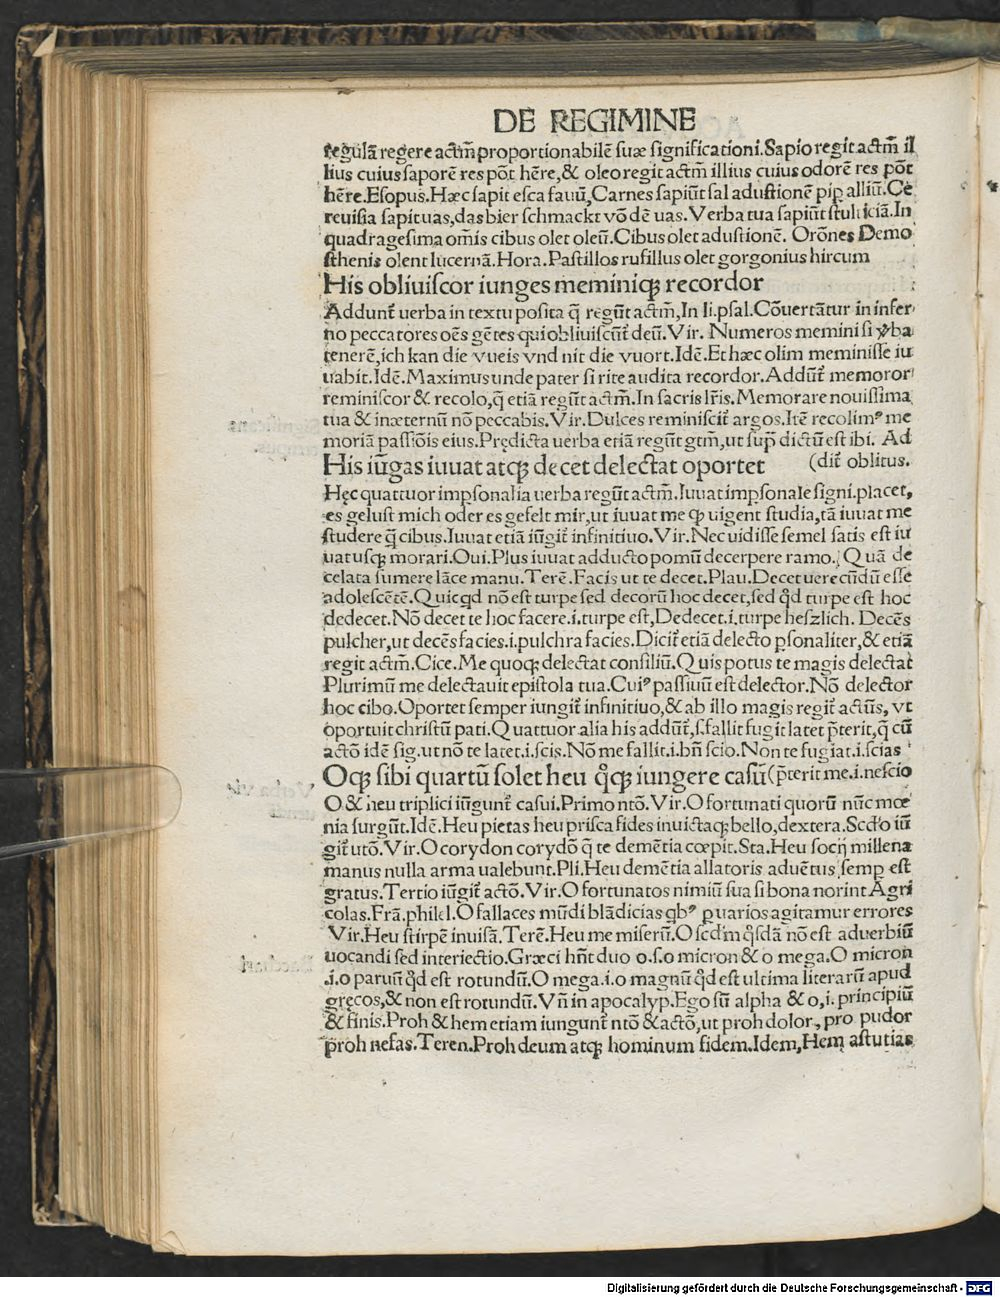 DE REGIMINE
regulã regere actm̃ proportionabilẽ suæ significationi.Sapio regit actm̃ il
lius cuius saporẽ res põt hẽre,& oleo regit actm̃ illius cuius odorẽ res põt
hẽre.Esopus.Hæc sapit esca fauũ,Carnes sapiũt sal adustionẽ pip̱ alliũ.Ce
reuisia sapit uas,das bier schmackt võ dẽ uas.Verba tua sapiũt stulticiã.In
quadragesima om̃is cibus olet oleũ.Cibus olet adustionẽ. Orõnes Demo
sthenis olent lucernã.Hora.Pastillos rufillus olet gorgonius hircum
His obliuiscor iunges meminiqꝫ recordor
Addunt᷑ uerba in textu posita q̃ regũt actm̃,In li.psal.Cõuertãtur in infer
no peccatores oẽs gẽtes qui obliuiscũt᷑ deũ.Vir. Numeros memini si ỽba
tenerẽ,ich kan die vueis vnd nit die vuort.Idẽ.Et hæc olim meminisse iu
uabit.Idẽ.Maximus unde pater si rite audita recordor.Addũt᷑ memoror
reminiscor & recolo,q̃ etiã regũt actm̃.In sacris lr̃is.Memorare nouissima
tua & in æternũ nõ peccabis.Vir.Dulces reminiscit᷑ argos.Itẽ recolimꝰ me
moriã passiõis eius.Prędicta uerba etiã regũt gtm̃,ut sup̃ dictũ est ibi. Ad
His iũgas iuuat atqꝫ decet delectat oportet (dit᷑ oblitus.
Hęc quattuor imp̱sonalia uerba regũt actm̃.Iuuat imp̱sonale signi.placet,
es gelust mich oder es gefelt mir,ut iuuat me qꝫ uigent studia,tã iuuat me
studere q̃ cibus.Iuuat etiã iũgit᷑ infinitiuo.Vir.Nec uidisse semel satis est iu
uat usqꝫ morari.Oui.Plus iuuat adducto pomũ decerpere ramo. Quã de
celata sumere lãce manu.Terẽ.Facis ut te decet.Plau.Decet uerecũdũ esse
adolescẽtẽ.Quicqd nõ est turpe sed decorũ hoc decet,sed qd̃ turpe est hoc
dedecet.Nõ decet te hoc facere.i.turpe est,Dedecet.i.turpe heszlich. Decẽs
pulcher,ut decẽs facies.i.pulchra facies.Dicit᷑ etiã delecto p̱sonaliter,& etiã
regit actm̃.Cice.Me quoqꝫ delectat consiliũ.Quis potus te magis delectat
Plurimũ me delectauit epistola tua.Cuiꝰ passiuũ est delector.Nõ delector
hoc cibo.Oportet semper iungit᷑ infinitiuo,& ab illo magis regit᷑ actũs, vt
oportuit christũ pati.Quattuor alia his addũt᷑,s.fallit fugit latet p̃terit,q̃ cũ
actõ idẽ sig.ut nõ te latet.i.scis.Nõ me fallit.i.bñ scio.Non te fugiat.i.scias
Oqꝫ sibi quartũ solet heu q̊qꝫ iungere casũ (p̃terit me.i.nescio
O & heu triplici iũgunt᷑ casui.Primo ntõ.Vir.O fortunati quorũ nũc mœ
nia surgũt.Idẽ.Heu pietas heu prisca fides inuictaqꝫ bello,dextera.Scd̃o iũ
git᷑ utõ.Vir.O corydon corydõ q̃ te demẽtia cœpit.Sta.Heu socij millena
manus nulla arma ualebunt.Pli.Heu demẽtia allatoris aduẽtus semp̱ est
gratus.Tertio iũgit᷑ actõ.Vir.O fortunatos nimiũ sua si bona norint Agri
colas.Frã.philel.O fallaces mũdi blãdicias qbꝰ p̱ uarios agitamur errores
Vir.Heu stirpẽ inuisã.Terẽ.Heu me miserũ.O scd̃m q̊sdã nõ est aduerbiũ
uocandi sed interiectio.Græci hñt duo o.s.o micron & o mega.O micron
.i.o paruũ qd̃ est rotundũ.O mega.i.o magnũ qd̃ est ultima literarũ apud
gręcos,& non est rotundũ.Vñ in apocalyp.Ego sũ alpha & o,i. principiũ
& finis.Proh & hem etiam iungunt᷑ ntõ & actõ,ut proh dolor, pro pudor
proh nefas.Teren.Proh deum atqꝫ hominum fidem.Idem,Hem astutias
Digitalisierung gefördert durch die Deutsche Forschungsgemeinschaft - DFG